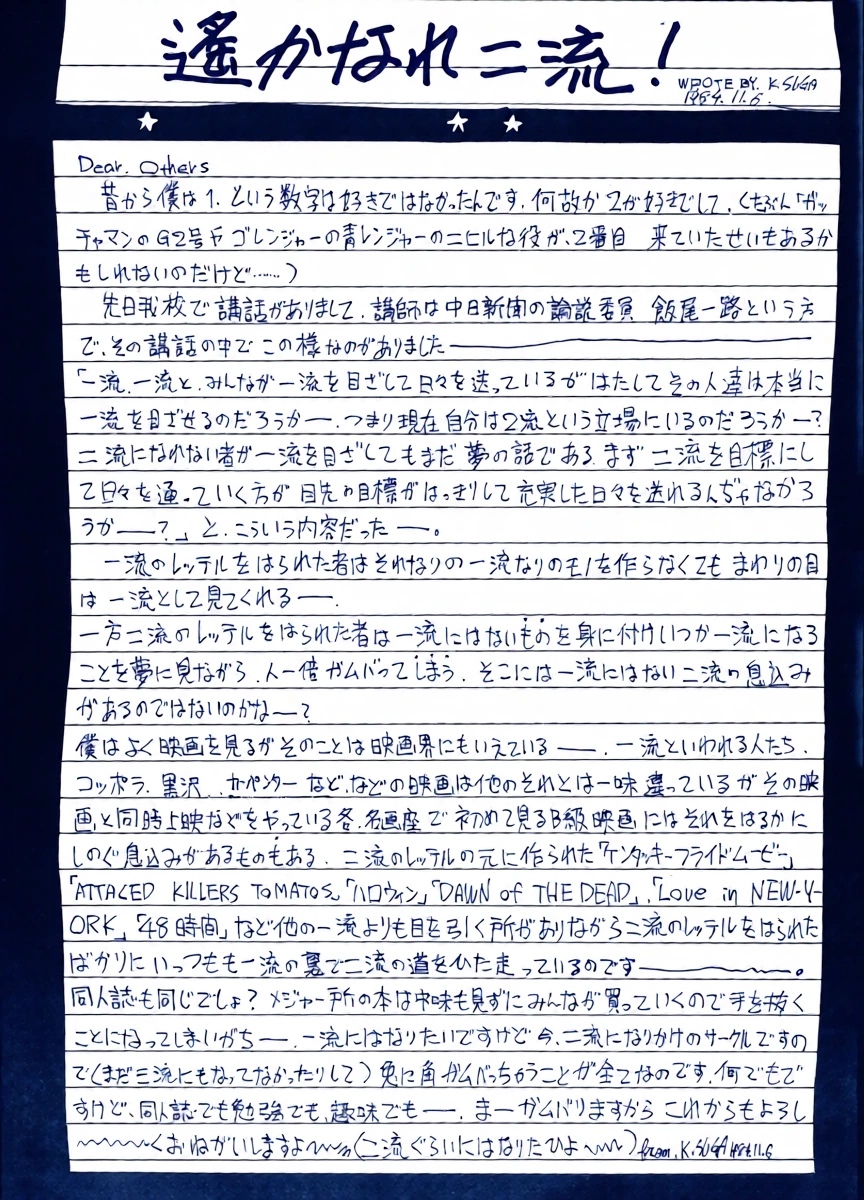 遙かなれ二流！
WROTE BY. K.SUGA
1984. 11.6.
Dear. Others
昔から僕は1. という数字は好きではなかったんです. 何故か 2が好きでして. (たぶん「ガッ
チャマンのG2号や ゴレンジャーの青レンジャーのニヒルな役が、2番目 来ていたせいもあるか
もしれないのだけど……)
先日我校で 講話がありまして. 講師は中日新聞の論説委員 飯尾一路という方
で、その講話の中で この様なのがありました――
「一流. 一流と. みんなが一流を目ざして日々を送っているが はたしてその人達は本当に
一流を目ざせるのだろうか―. つまり現在自分は2流という立場にいるのだろうか―?
二流になれない者が一流を目ざしてもまだ 夢の話である. まず 二流を目標にし
て日々を通っていく方が 目先の目標がはっきりして充実した日々を送れるんぢゃなかろ
うか――?」 と. こういう内容だった―。
一流のレッテルをはられた者はそれなりの一流なりのモノを作らなくても まわりの目
は 一流として見てくれる―.
一方二流のレッテルをはられた者は一流にはないものを身に付けいつか一流になる
ことを夢に見ながら. 人一倍ガムバってしまう. そこには一流にはない二流の息込み
があるのではないのかな―?
僕はよく映画を見るがそのことは映画界にもいえている ―. 一流といわれる人たち.
コッポラ. 黒沢. カーペンター などなどの映画は他のそれとは一味違っているが その映
画と同時上映などをやっている各. 名画座で 初めて見るB級映画にはそれをはるかに
しのぐ息込みがあるものもある. 二流のレッテルの元に作られた「ケンタッキーフライドムービー」
「ATTACED KILLERS TOMATOS」「ハロウィン」「DAWN of THE DEAD」.「Love in NEW-Y-
ORK」「48時間」など他の一流よりも目を引く所がありながら二流のレッテルをはられた
ばかりに いっつもも一流の裏で二流の道をひた走っているのです――。
同人誌も同じでしょ? メジャー所の本は中味も見ずに みんなが買っていくので手を抜く
ことになってしまいがち―. 一流にはなりたいですけど 今. 二流になりかけのサークルですの
で(まだ三流にもなってなかったりして) 兎に角ガムバっちゃうことが全てなのです. 何でもで
すけど、同人誌でも勉強でも、趣味でも―. まーガムバりますから これからもよろし
〜〜〜くおねがいしますよ〜〜 (二流ぐらいにはなりたひよ〜〜) from. K.SUGA 1984.11.6